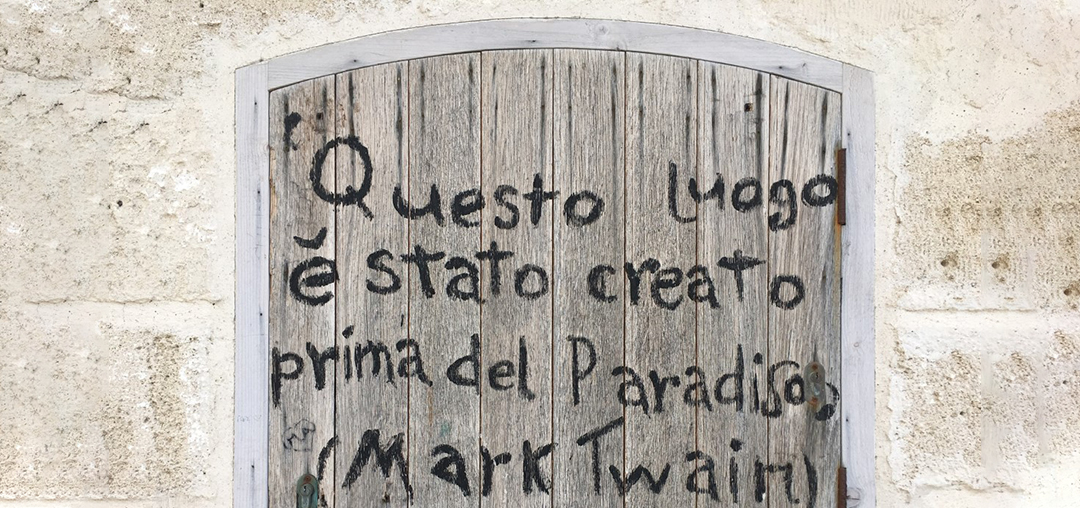 "Questo luogo
è stato creato
prima del Paradiso"
(Mark Twain)